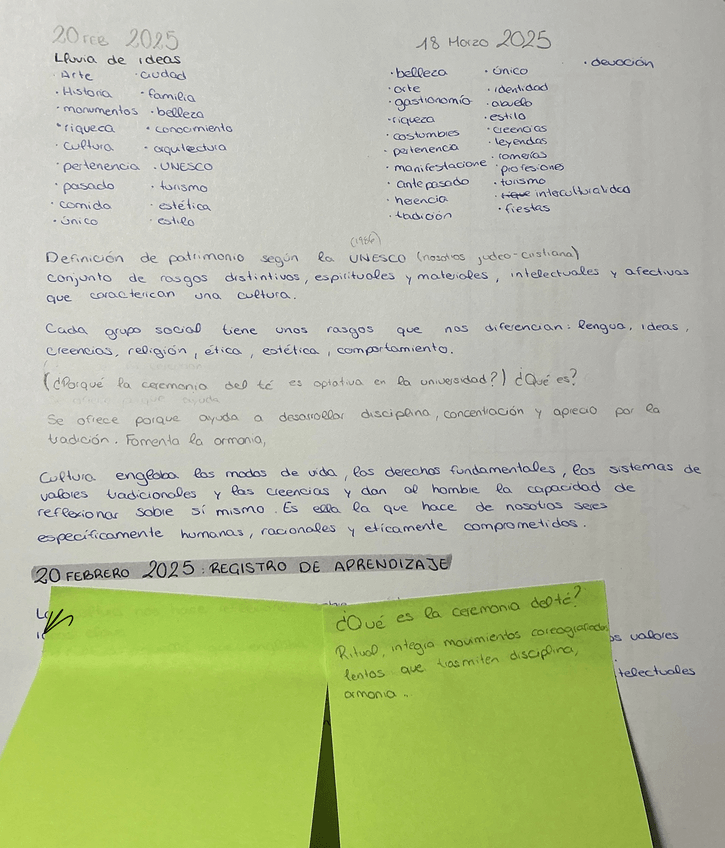 20 FEB 2025
Lluvia de ideas
· Arte · ciudad
· Historia · familia
· monumentos · belleza
· riqueca · conocimiento
· cultura · arquitectura
· pertenencia · UNESCO
· pasado · turismo
· comida · estética
· único · estilo
18 Marzo 2025
· belleza · único · devoción
· arte · identidad
· gastronomía · abuelo
· riqueza · estilo
· costumbres · creencias
· pertenencia · leyendas
· manifestacione · romerías
· antepasado · profesiones
· herencia · turismo
· tradición · interculturalidad
· fiestas
(1986)
Definición de patrimonio según la UNESCO (nosotros judeo-cristiana)
conjunto de rasgos distintivos, espirituales y materiales, intelectuales y afectivas
que caracterican una cultura.
Cada grupo social tiene unos rasgos que nos diferencian: lengua, ideas,
creencias, religión, ética, estética, comportamiento.
(¿Porqué la ceremonia del té es optativa en la universidad?) ¿Qué es?
Se ofrece porque ayuda a desarrollar disciplina, concentración y aprecio por la
tradición. Fomenta la armonia,
Cultura engloba los modos de vida, los derechos fundamentales, los sistemas de
valores tradicionales y las creencias y dan al hombre la capacidad de
reflexionar sobre sí mismo. Es ella la que hace de nosotros seres
específicamente humanas, racionales y eticamente comprometidos.
20 FEBRERO 2025: REGISTRO DE APRENDIZAJE
¿Qué es la ceremonia del té?
Ritual, integra movimientos coreografiados,
lentos que trasmiten disciplina,
armonia..
valores
telectuales